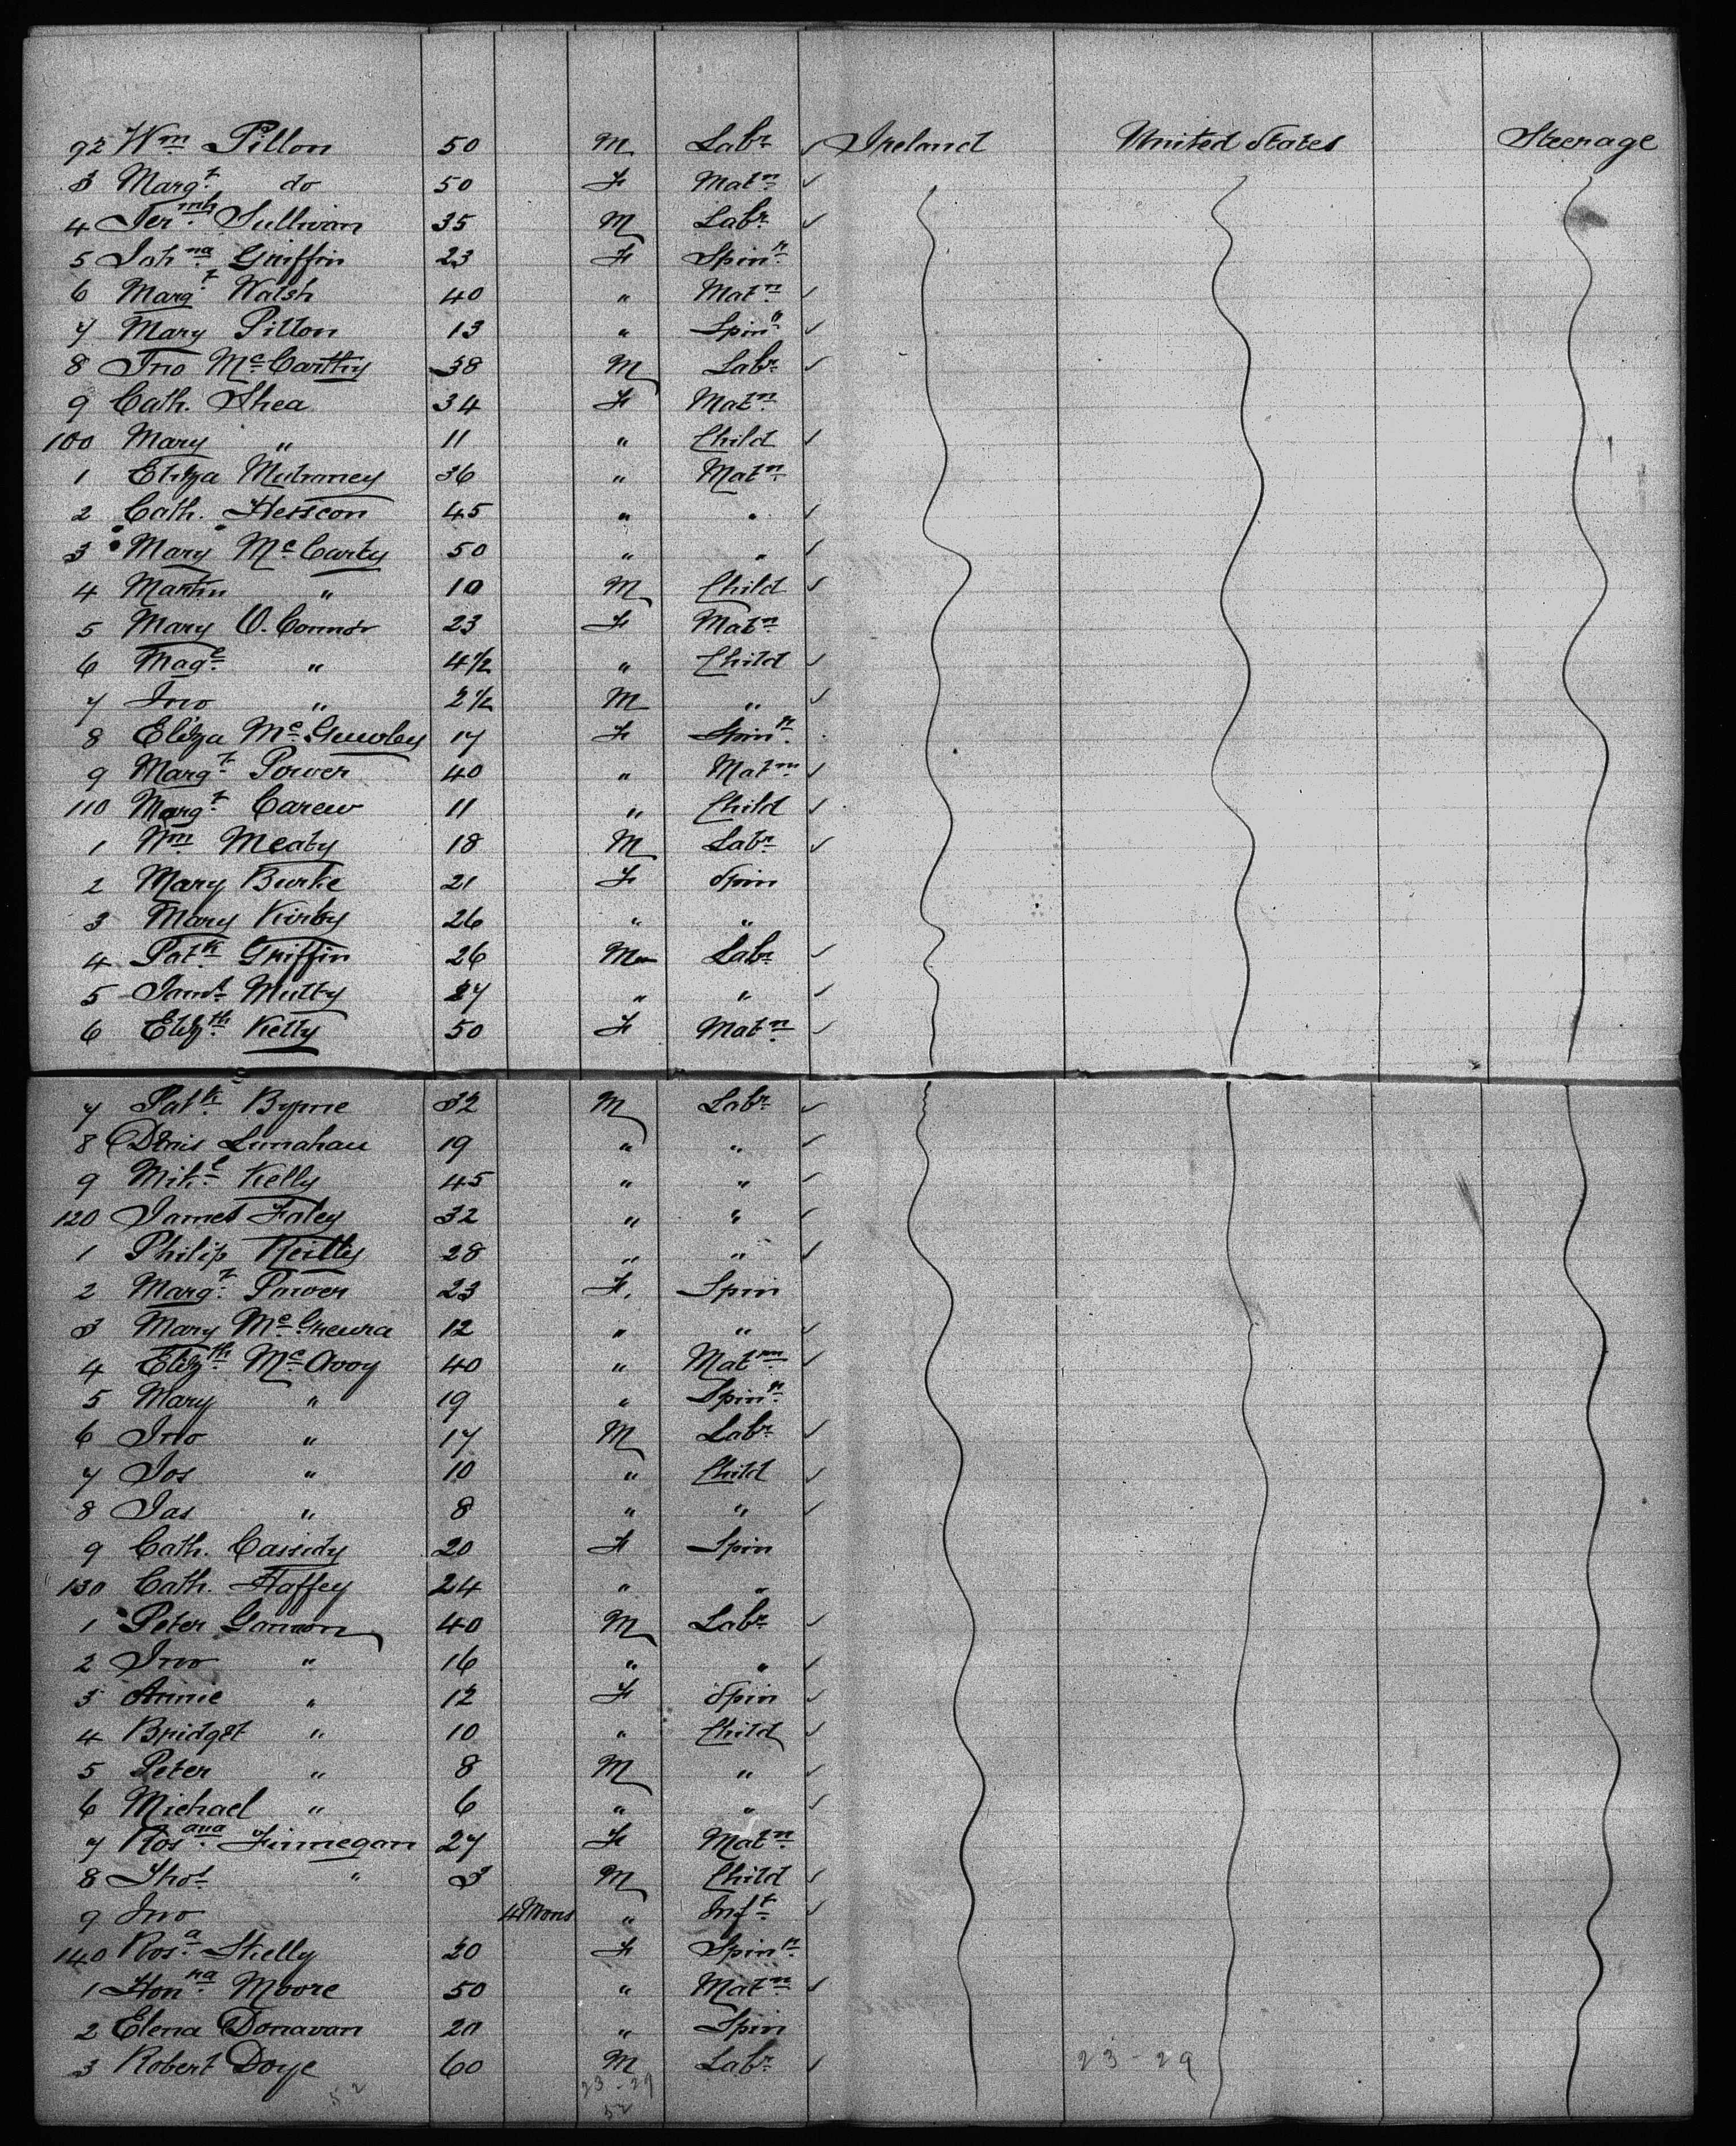 92 Wm Pillon 50 M Labr ✓ Ireland United States Steerage
3 Margt do 50 F Matn ✓
4 Jermh Sullivan 35 M Labr ✓
5 Johna Griffin 23 F Spinr
6 Margt Walsh 40 " Matn ✓
7 Mary Pillon 13 " Spinr ✓
8 Jno McCarthy 38 M Labr ✓
9 Cath. Shea 34 F Matn
100 Mary " 11 " Child ✓
1 Eliza Mulraney 36 " Matn
2 Cath. 45 " " ✓
3 Mary McCarty 50 " " ✓
4 Martin " 10 M Child ✓
5 Mary O.Connor 23 F Matn
6 Mage " 4½ " Child ✓
7 Jno " 2½ M " ✓
8 Eliza 17 F Spinr
9 Margt Power 40 " Matn ✓
110 Margt Carew 11 " Child ✓
1 Wm Meaty 18 M Labr ✓
2 Mary Burke 21 F Spin
3 Mary Kirby 26 " "
4 Patk Griffin 26 M Labr ✓
5 Jams 27 " " ✓
6 Elizth Kelly 50 F Matn ✓
7 Patk Byrne 32 M Labr ✓
8 Denis Lunahan 19 " " ✓
9 Mihl Kelly 45 " " ✓
120 James Foley 32 " " ✓
1 Philip Reilly 28 " " ✓
2 Margt Power 23 F. Spin
3 Mary 12 " " ✓
4 Elizth McAvoy 40 " Matrn ✓
5 Mary " 19 " Spinr
6 Jno " 17 M Labr ✓
7 Jos " 10 " Child ✓
8 Jas " 8 " " ✓
9 Cath. Cassidy 20 F Spin
130 Cath. Haffey 24 " "
1 Peter Gannon 40 M Labr ✓
2 Jno " 16 " " ✓
3 Annie " 12 F Spin ✓
4 Bridget " 10 " Child ✓
5 Peter " 8 M " ✓
6 Michael " 6 " " ✓
7 Rosana Finnegan 27 F Matn
8 Thos " 3 M Child ✓
9 Jno 4 Mons " Inft ✓
140 Rosa Skelly 20 F Spinr
1 Honna Moore 50 " Matn ✓
2 Elena Donavan 20 " Spin
3 Robert Doye 60 M Labr ✓ 23 - 29
52 23 - 29
52